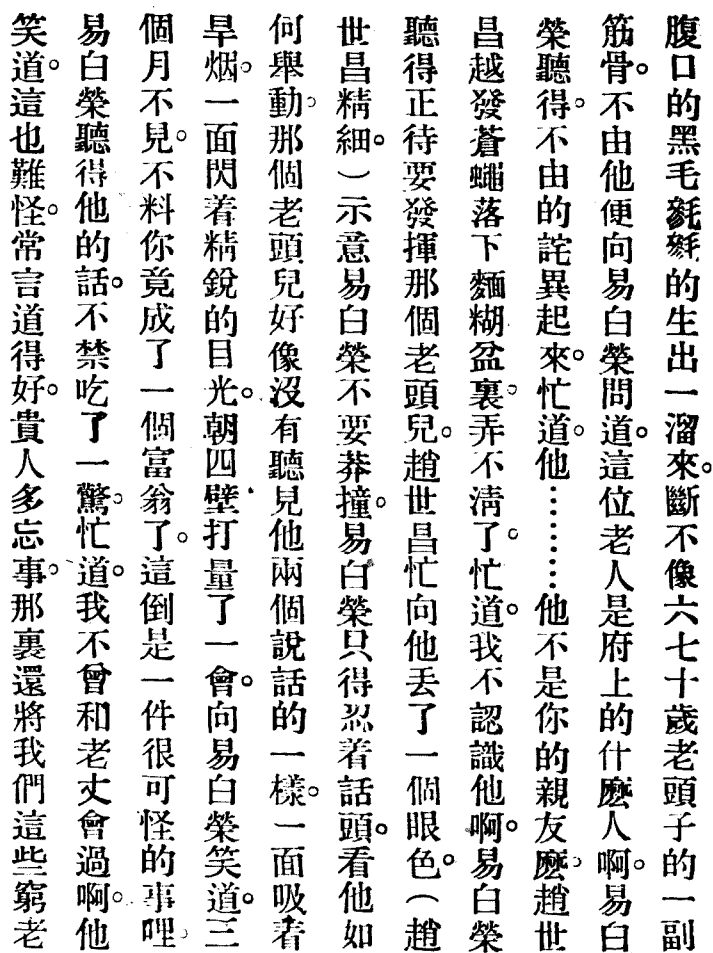 腹口的黑毛毿毿的生出一溜來。斷不像六七十歲老頭子的一副
筋骨。不由他便向易白榮問道。這位老人是府上的什麽人啊。易白
榮聽得。不由的詫異起來。忙道。他……他不是你的親友麽。趙世
昌越發蒼蠅落下麵糊盆裏。弄不清了。忙道。我不認識他啊。易白榮
聽得正待要發揮那個老頭兒。趙世昌忙向他丟了一個眼色。（趙
世昌精細。）示意易白榮不要莽撞。易白榮只得忍着話頭。看他如
何舉動。那個老頭兒好像沒有聽見他兩個說話的一樣。一面吸着
旱烟。一面閃着精銳的目光。朝四壁打量了一會。向易白榮笑道。三
個月不見。不料你竟成了一個富翁了。這倒是一件很可怪的事哩。
易白榮聽得他的話。不禁吃了一驚。忙道。我不曾和老丈會過啊。他
笑道。這也難怪。常言道得好。貴人多忘事。那裏還將我們這些窮老